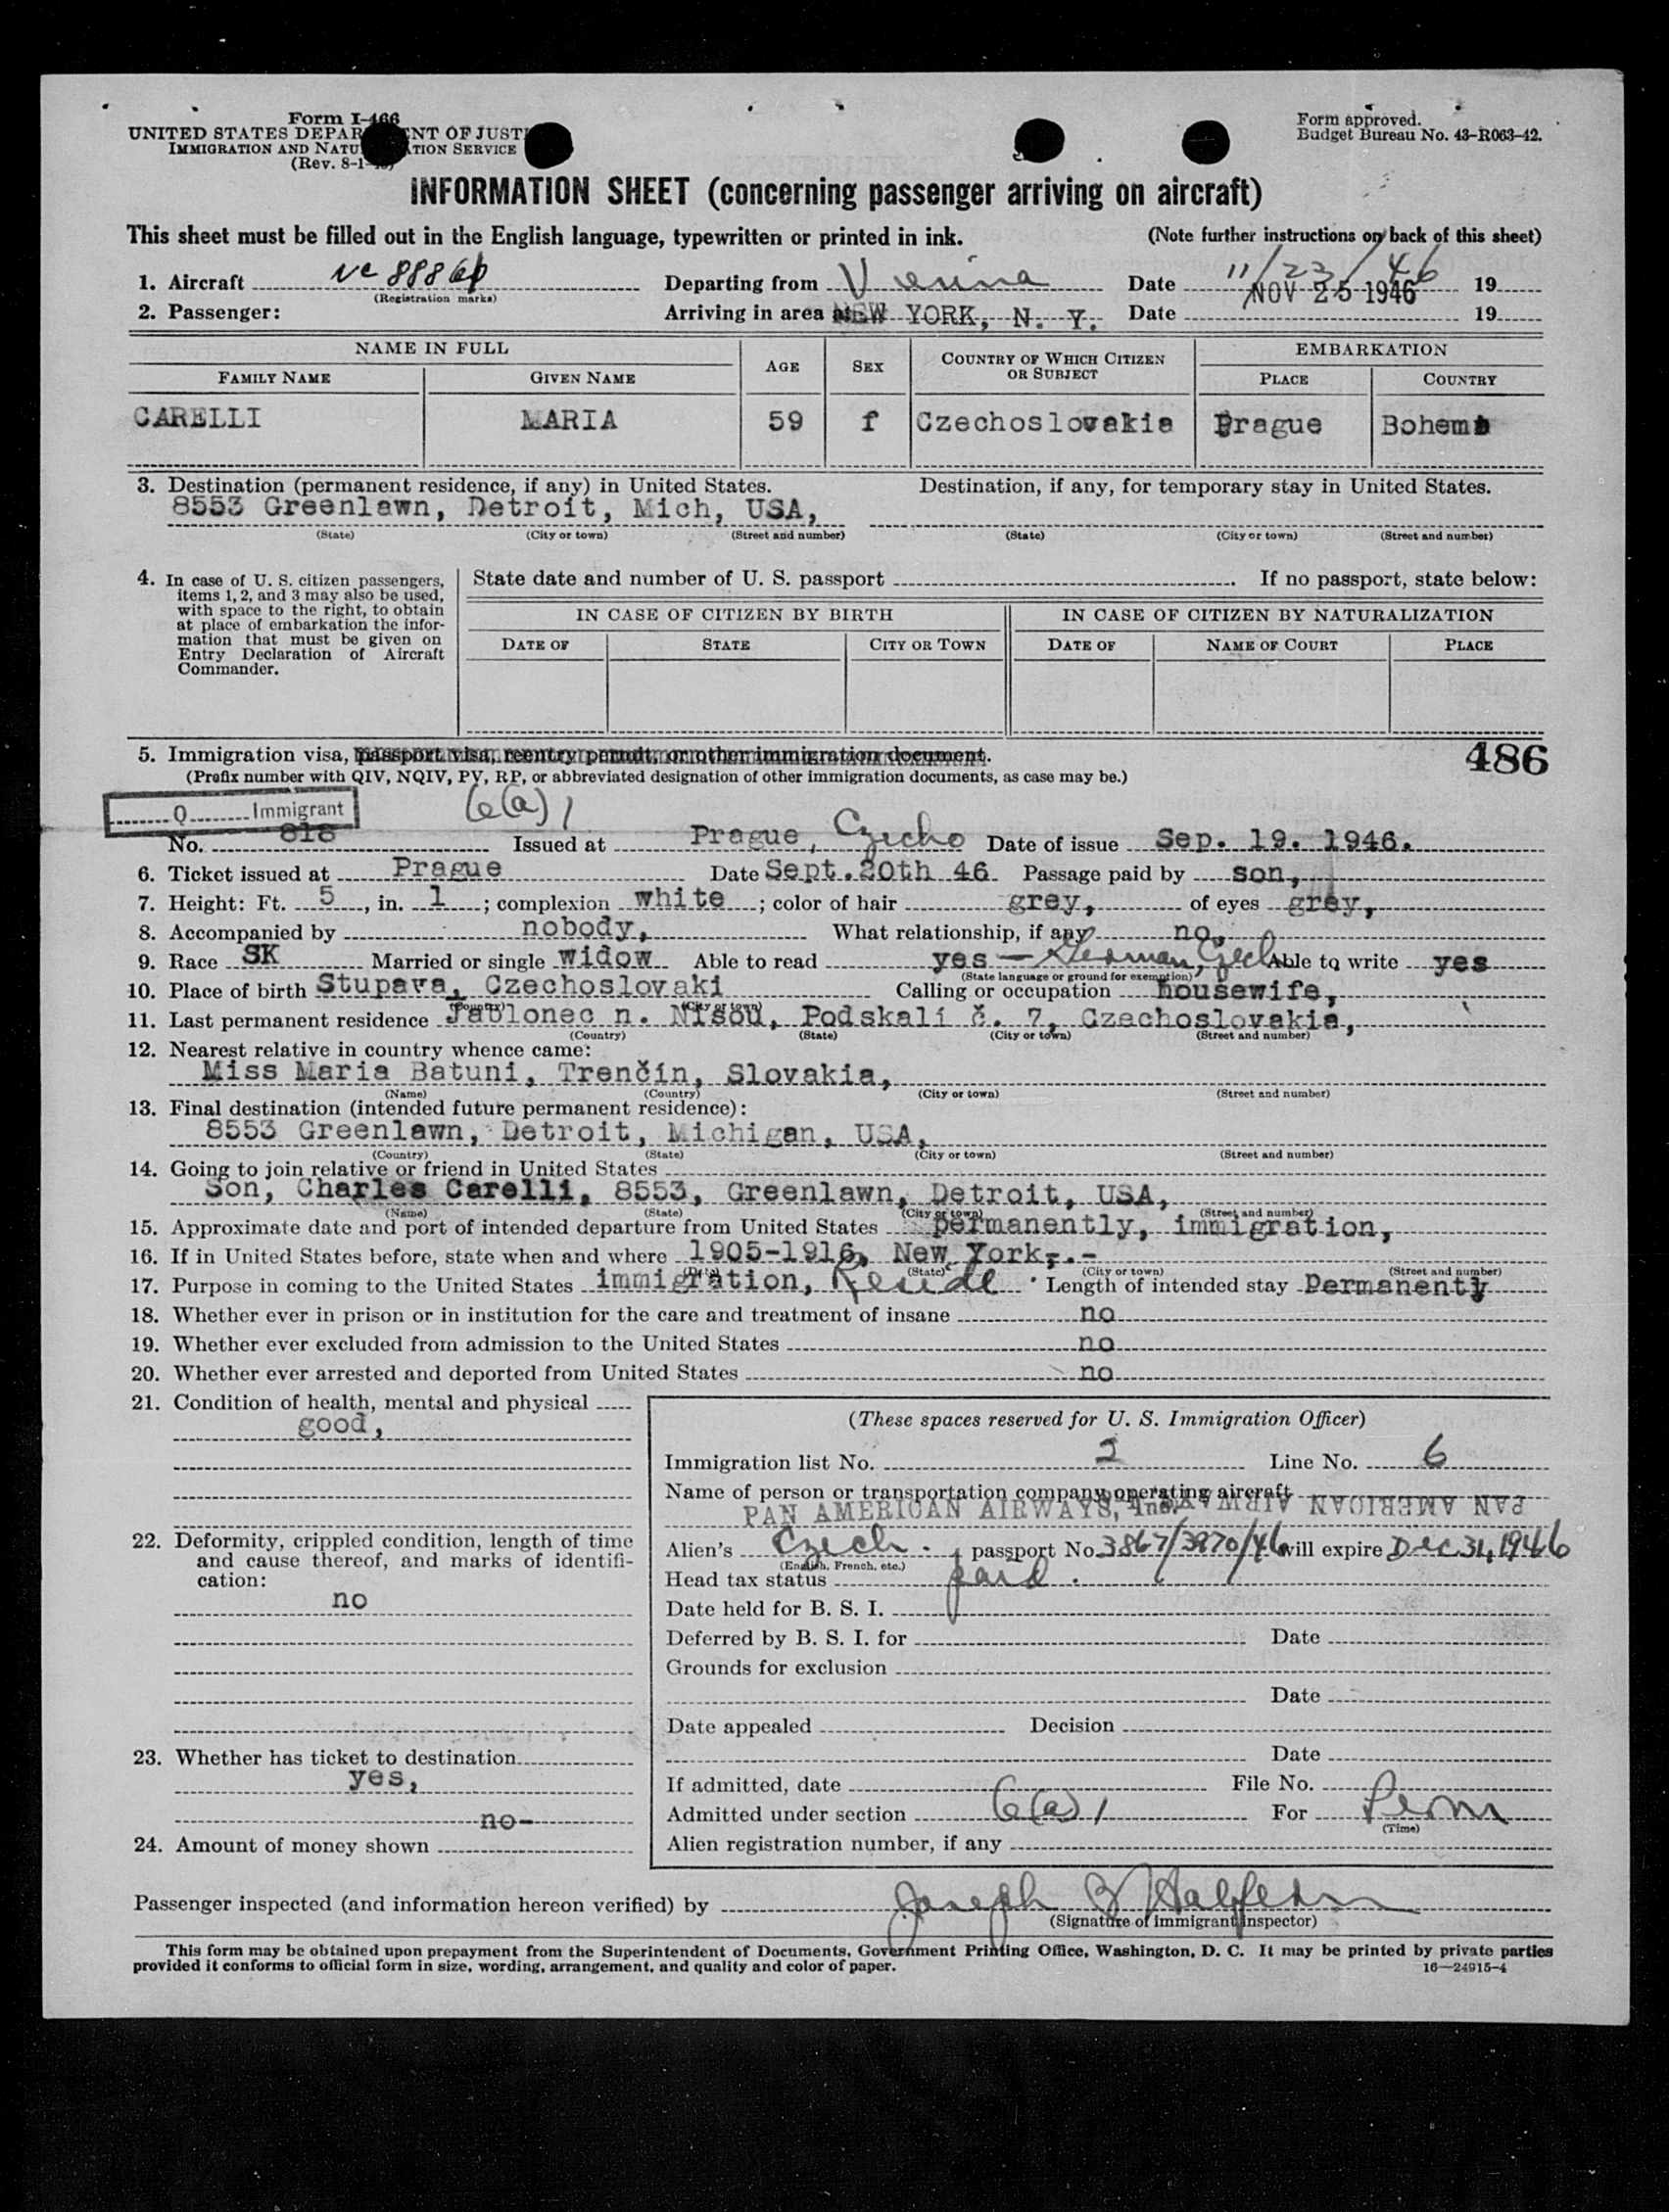 Form I-466
UNITED STATES DEPAR NT OF JUST
IMMIGRATION AND NATU TION SERVICE
(Rev. 8-1-
Form approved.
Budget Bureau No. 43-R063-42.
INFORMATION SHEET (concerning passenger arriving on aircraft)
This sheet must be filled out in the English language, typewritten or printed in ink. (Note further instructions on back of this sheet)
1. Aircraft Departing from Vienna Date 11/23/46 19
(Registration marks)
2. Passenger: Arriving in area at NEW YORK, N. Y. Date NOV 25 1946 19
NAME IN FULL AGE SEX COUNTRY OF WHICH CITIZEN OR SUBJECT EMBARKATION
FAMILY NAME GIVEN NAME PLACE COUNTRY
CARELLI MARIA 59 f Czechoslovakia Prague Bohem
3. Destination (permanent residence, if any) in United States. Destination, if any, for temporary stay in United States.
8553 Greenlawn, Detroit, Mich, USA,
(State) (City or town) (Street and number) (State) (City or town) (Street and number)
4. In case of U. S. citizen passengers, items 1, 2, and 3 may also be used, with space to the right, to obtain at place of embarkation the information that must be given on Entry Declaration of Aircraft Commander.
State date and number of U. S. passport . If no passport, state below:
IN CASE OF CITIZEN BY BIRTH IN CASE OF CITIZEN BY NATURALIZATION
DATE OF STATE CITY OR TOWN DATE OF NAME OF COURT PLACE
5. Immigration visa, passport visa, reentry permit, or other immigration document. 486
(Prefix number with QIV, NQIV, PV, RP, or abbreviated designation of other immigration documents, as case may be.)
Q Immigrant 6(a)1
No. 818 Issued at Prague, Czecho Date of issue Sep. 19. 1946.
6. Ticket issued at Prague Date Sept. 20th 46 Passage paid by son,
7. Height: Ft. 5, in. 1; complexion white; color of hair grey, of eyes grey,
8. Accompanied by nobody, What relationship, if any no,
9. Race SK Married or single widow Able to read yes - German, Czech Able to write yes
(State language or ground for exemption)
10. Place of birth Stupava, Czechoslovaki Calling or occupation housewife,
(Country) (City or town)
11. Last permanent residence Jablonec n. Nisou, Podskalí č. 7, Czechoslovakia,
(Country) (State) (City or town) (Street and number)
12. Nearest relative in country whence came:
Miss Maria Batuni, Trenčín, Slovakia,
(Name) (Country) (City or town) (Street and number)
13. Final destination (intended future permanent residence):
8553 Greenlawn, Detroit, Michigan, USA,
(Country) (State) (City or town) (Street and number)
14. Going to join relative or friend in United States
Son, Charles Carelli, 8553, Greenlawn, Detroit, USA,
(Name) (State) (City or town) (Street and number)
15. Approximate date and port of intended departure from United States permanently, immigration,
16. If in United States before, state when and where 1905-1916, New York,.-
(Date) (State) (City or town) (Street and number)
17. Purpose in coming to the United States immigration, Reside Length of intended stay Permanently
18. Whether ever in prison or in institution for the care and treatment of insane no
19. Whether ever excluded from admission to the United States no
20. Whether ever arrested and deported from United States no
21. Condition of health, mental and physical
good,
22. Deformity, crippled condition, length of time and cause thereof, and marks of identification:
no
23. Whether has ticket to destination
yes,
no-
24. Amount of money shown
(These spaces reserved for U. S. Immigration Officer)
Immigration list No. 2 Line No. 6
Name of person or transportation company operating aircraft
PAN AMERICAN AIRWAYS, Inc. PAN AMERICAN AIRWAYS
Alien's Czech. passport No. 3867/3970/46 will expire Dec 31, 1946
(English, French, etc.)
Head tax status paid.
Date held for B. S. I.
Deferred by B. S. I. for Date
Grounds for exclusion
Date
Date appealed Decision
Date
If admitted, date File No.
Admitted under section 6(a)1 For Perm
(Time)
Alien registration number, if any
Passenger inspected (and information hereon verified) by Joseph B
(Signature of immigrant inspector)
This form may be obtained upon prepayment from the Superintendent of Documents, Government Printing Office, Washington, D. C. It may be printed by private parties
provided it conforms to official form in size, wording, arrangement, and quality and color of paper. 16—24915-4